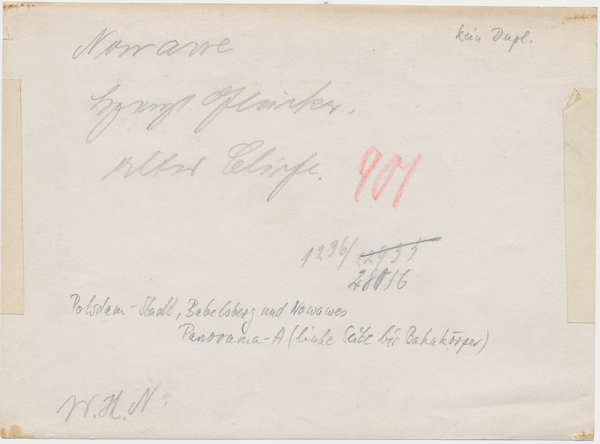 kein Dupl.
Nowawe
alter
901
1296/ 2935
28016
Potsdam-Stadt, Babelsberg und Nowawes
Panorama-A (linke Seite bis Bahnkörper)
W. H. N.